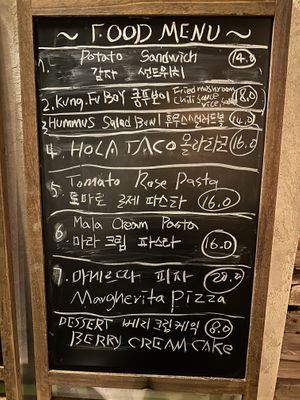 ~ FOOD MENU ~
1. Potato Sandwich 14.0
감자 샌드위치
2. Kung.Fu BOY 쿵푸보이 Fried mushroom 18.0
Chili sauce
rice,
3 Hummus Salad Bowl 훔무스 샐러드볼 14.0
4. HOLA TACO 올라타코 16.0
5 Tomato Rose Pasta
토마토 로제 파스타 16.0
6 Mala Cream Pasta
마라 크림 파스타 16.0
7. 마게리따 피자
Margherita Pizza
DESSERT 베리크림케익 8.0
BERRY CREAM CAKE